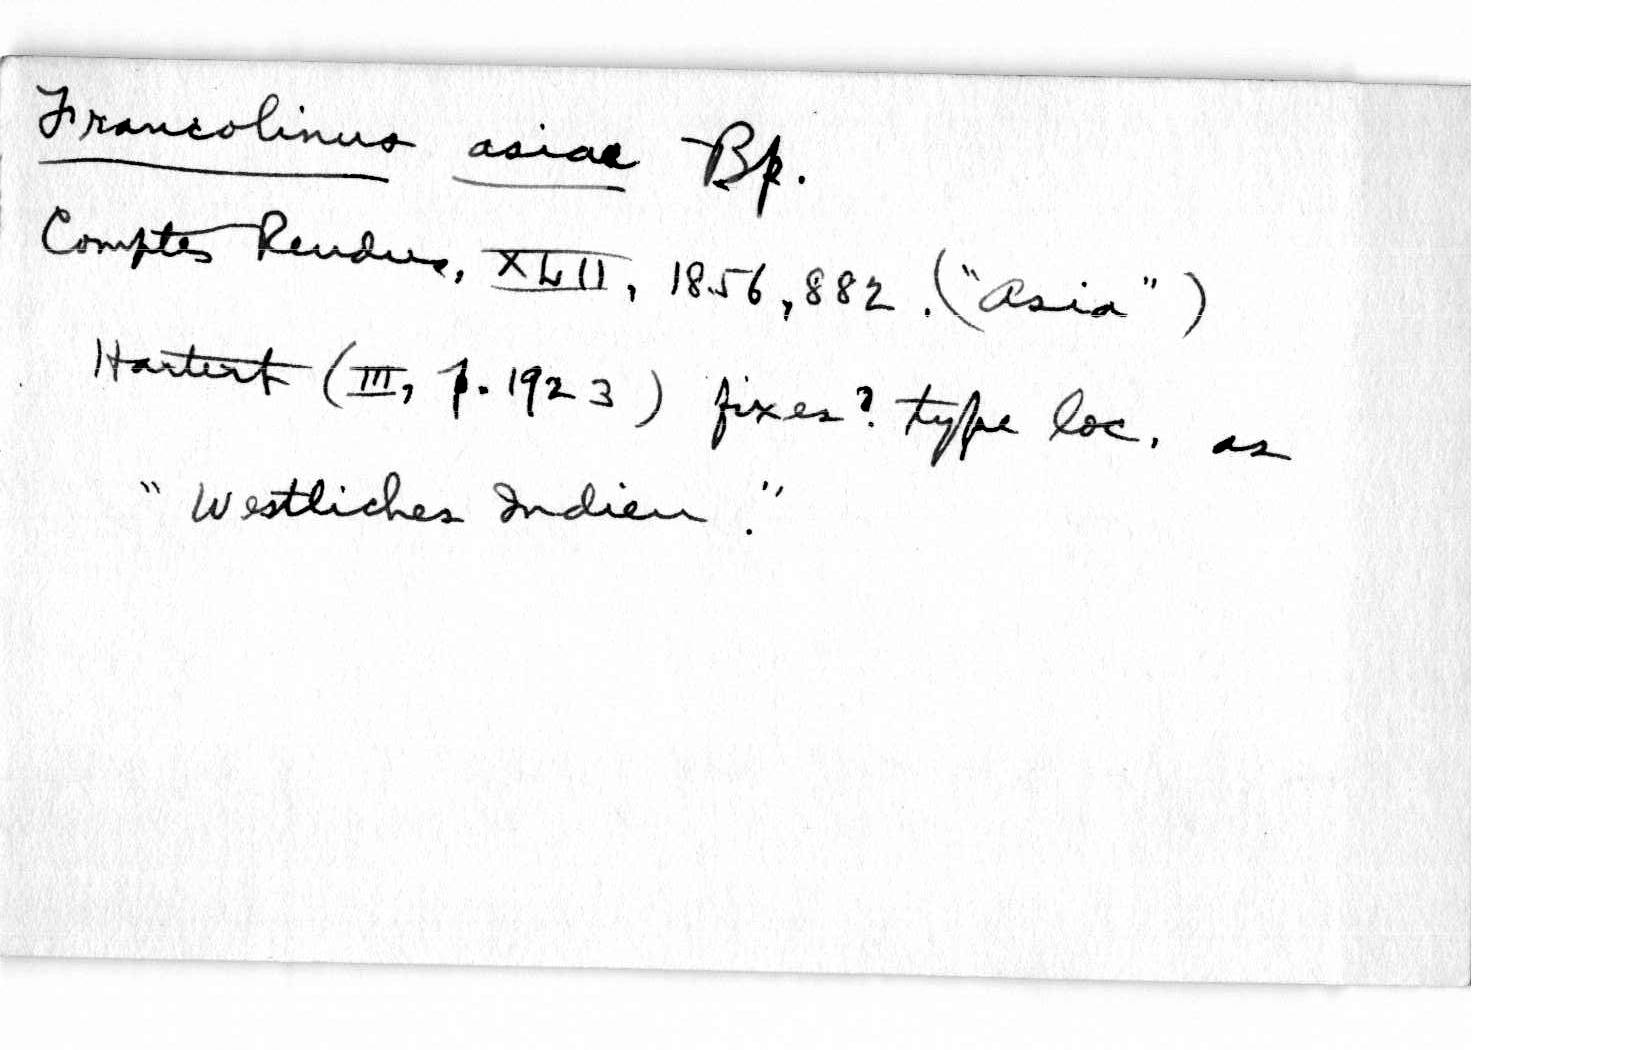 Francolinus asiae Bp.
Comptes Rendus, XLII, 1856, 882. ("Asia")
Hartert (III, p. 1923) fixes? type loc. as
"Westliches Indien."